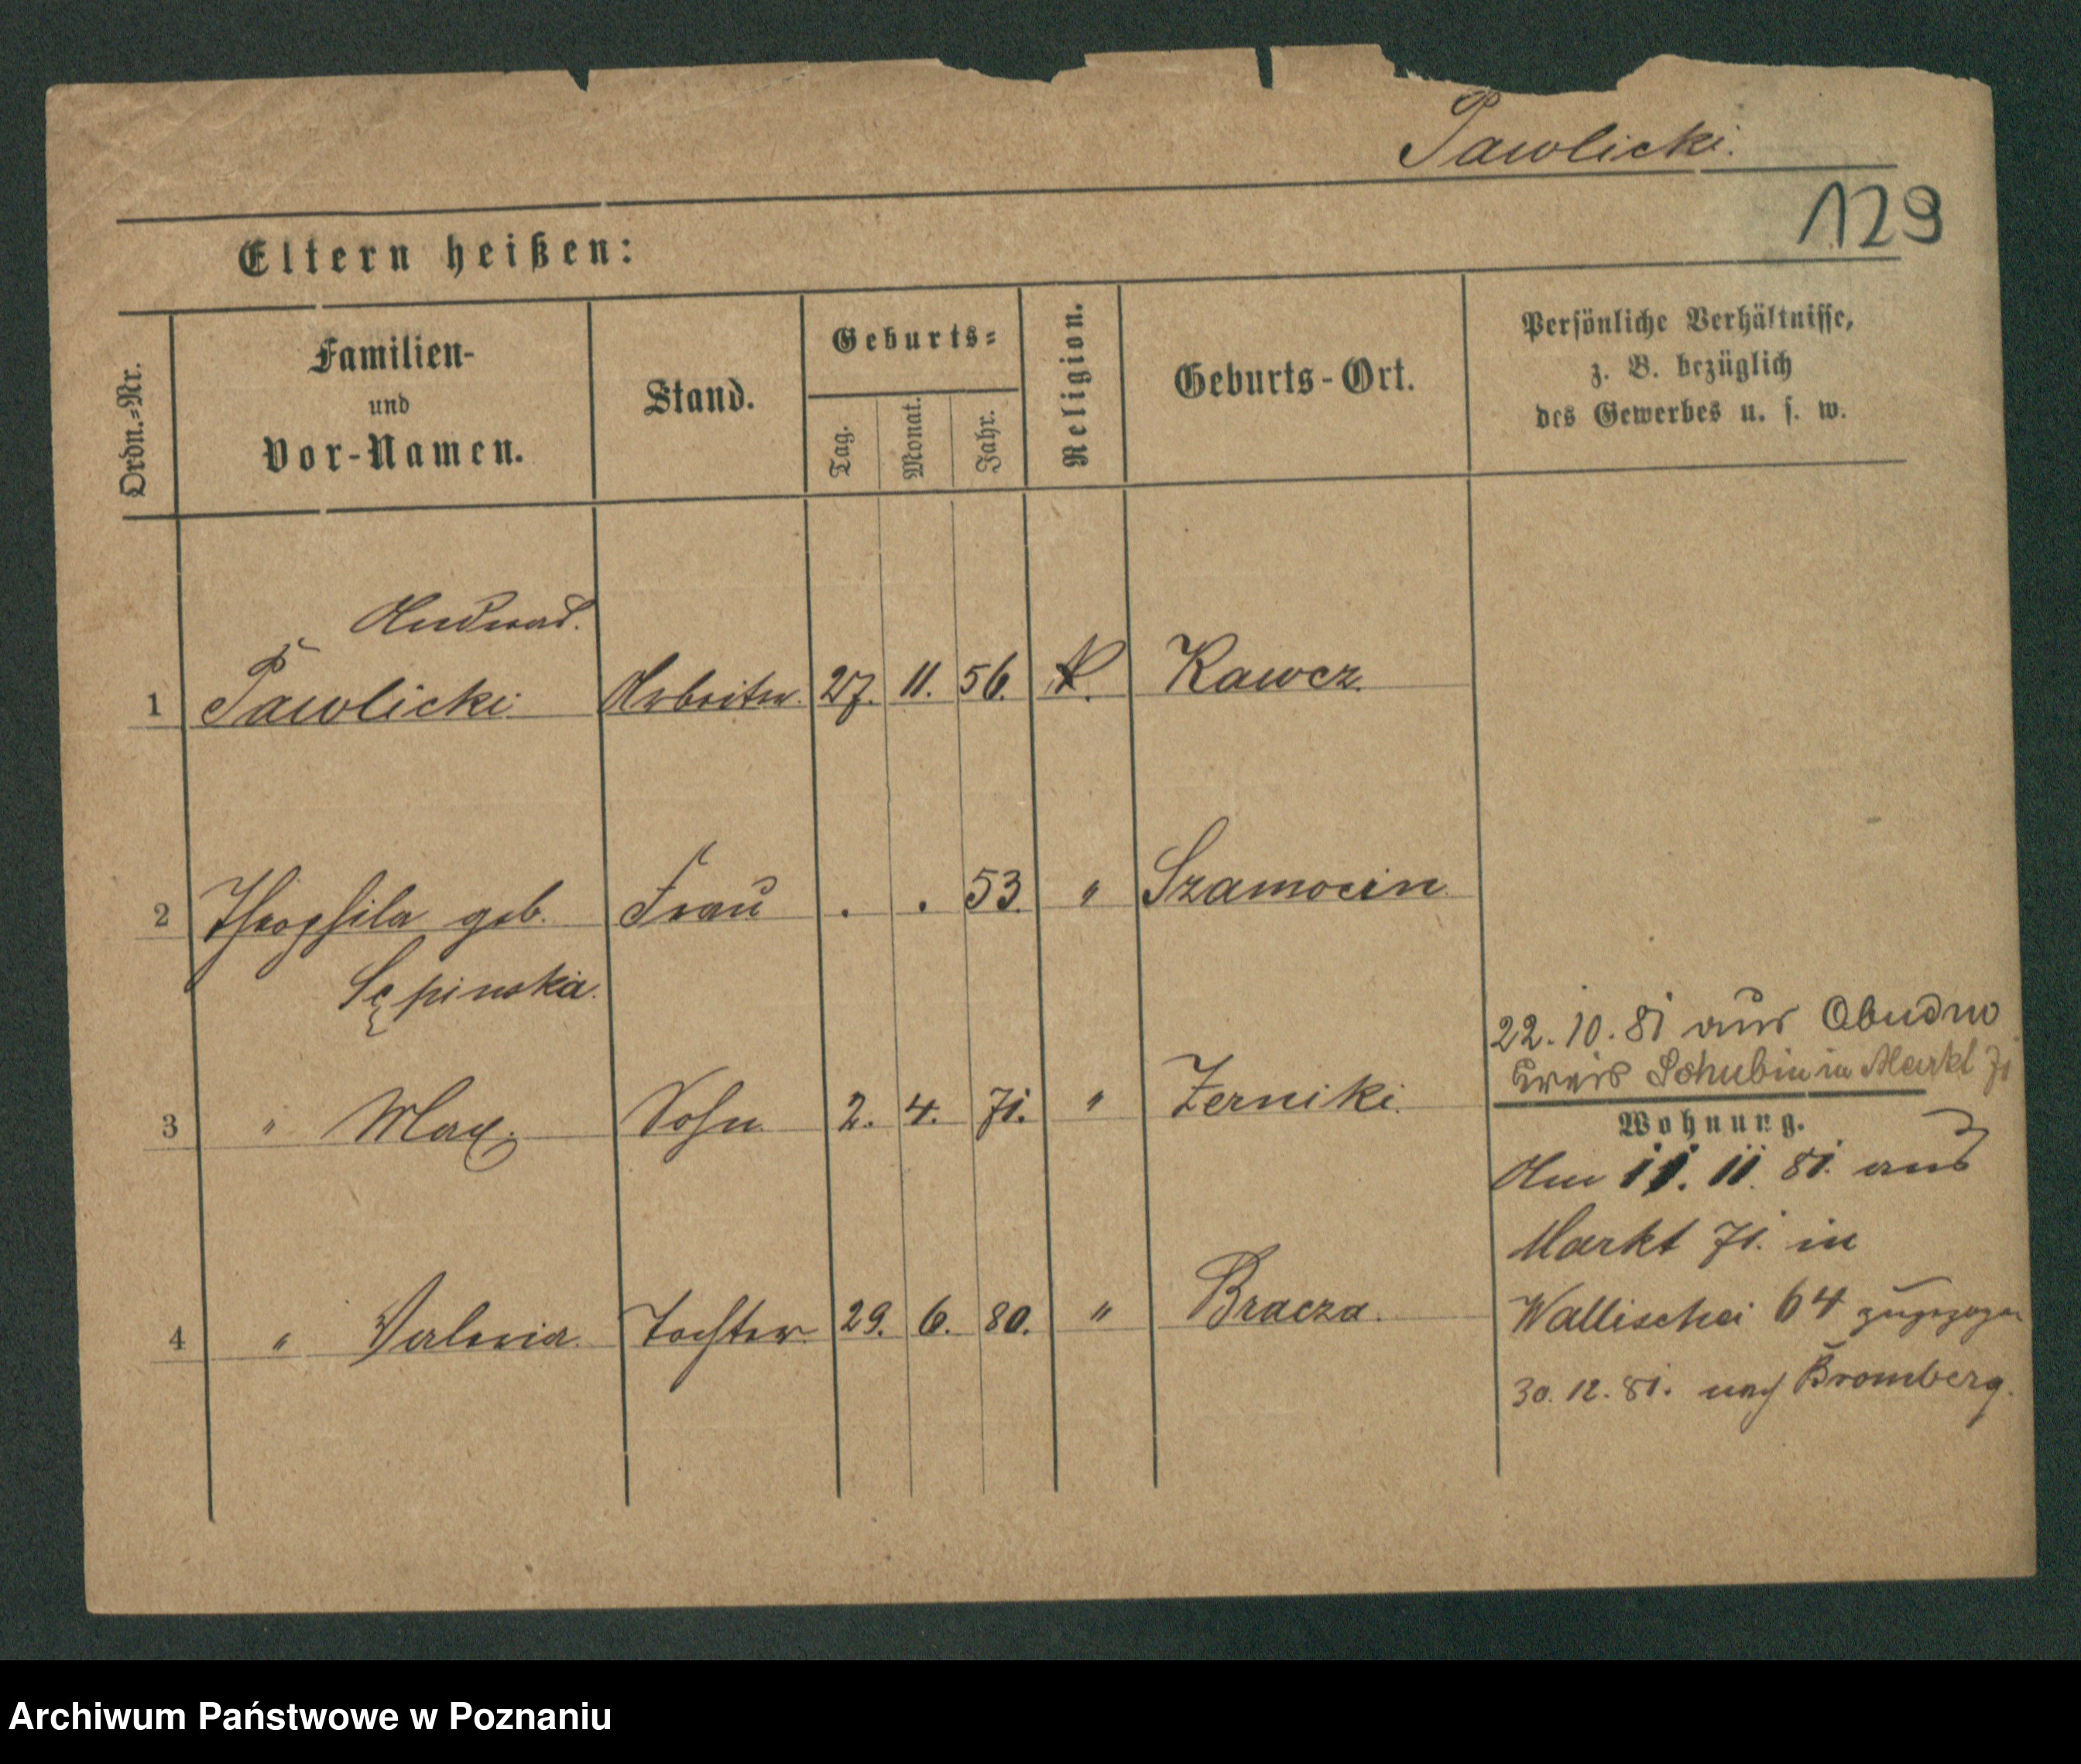 Pawlicki.
129
Eltern heißen:
Ordn.-Nr.
Familien-
und
Vor-Namen.
Stand.
Geburts-
Tag.
Monat.
Jahr.
Religion.
Geburts-Ort.
Persönliche Verhältnisse,
z. B. bezüglich
des Gewerbes u. s. w.
Andreas.
1 Pawlicki Arbeiter. 27. 11. 56. K. Kawcz.
2 Theophila geb. Frau . . 53. " Szamocin
Sępinska.
3 " Max. Sohn 2. 4. 71. " Zerniki.
4 " Valeria. Tochter. 29. 6. 80. " Bracza.
22. 10. 81 aus
Kreis Schubin in Markt 71
Wohnung.
Am 11. 11. 81. aus
Markt 71. in
Wallischei 64 zugezogen
30. 12. 81. nach Bromberg.
Archiwum Państwowe w Poznaniu